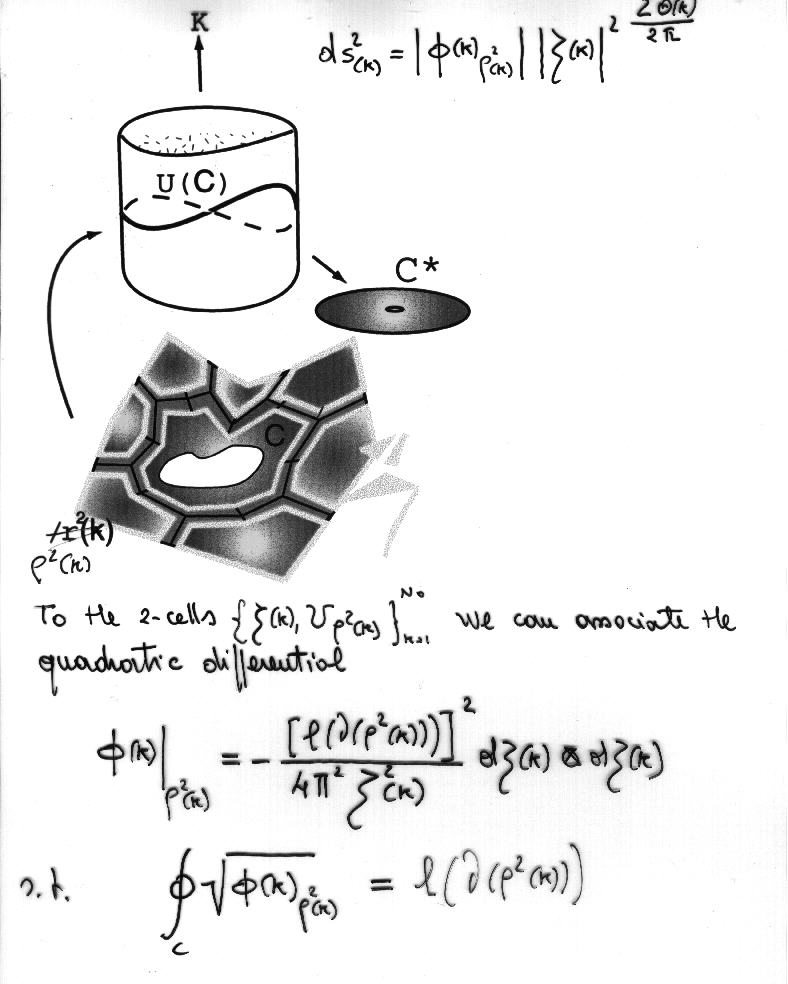 K
ds²_(k) = |ϕ(k)_ρ²(k)| |ζ(k)|^2 2Θ(k)/2π
U(C)
C*
C
ρ²(k)
To the 2-cells {ζ(k), U_ρ²(k)}_{k=1}^{N₀} we can associate the
quadratic differential
ϕ(k)|_ρ²(k) = - [ℓ(∂(ρ²(k)))]² / 4π² ζ²(k) dζ(k) ⊗ dζ(k)
s.t. ∮_C √ϕ(k)_ρ²(k) = ℓ(∂(ρ²(k)))